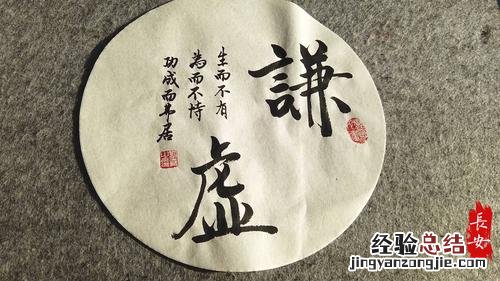 謙
虚
生而不有
為而不恃
功成而弗居
長安
经验总结
jingyanzongjie.com